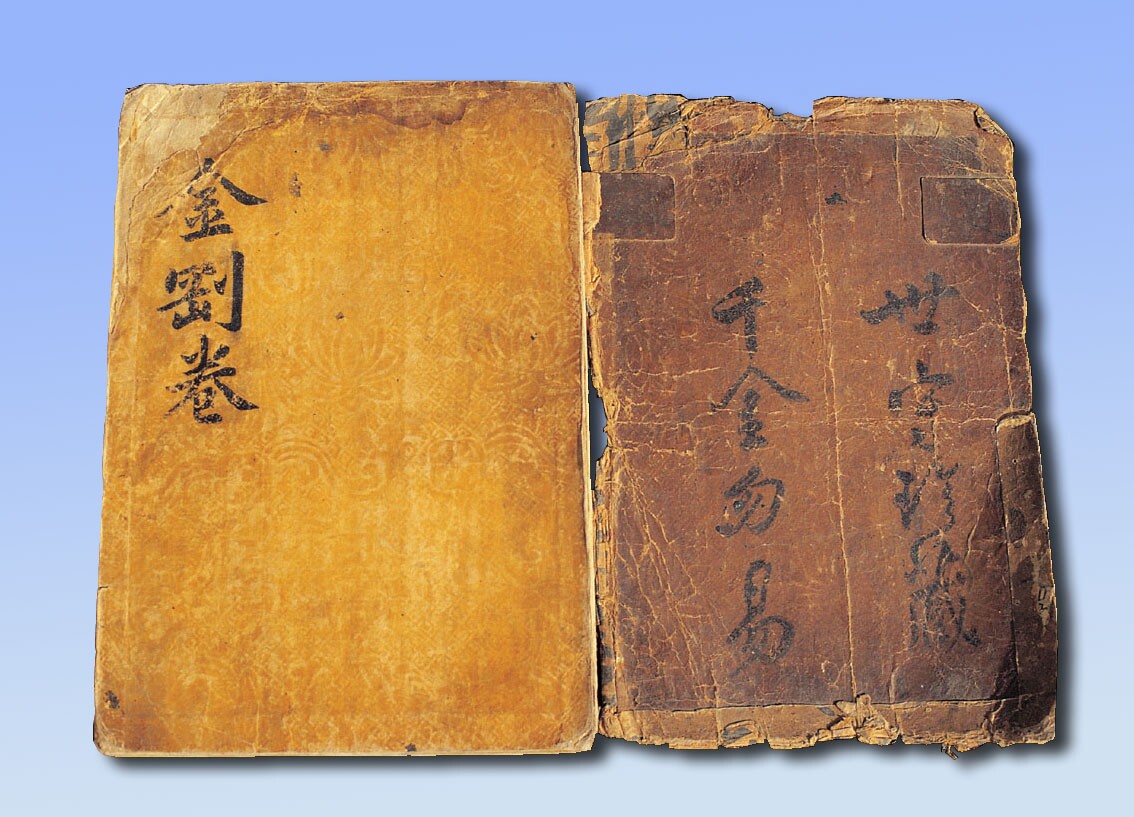 金剛卷
世珍藏
千金勿易